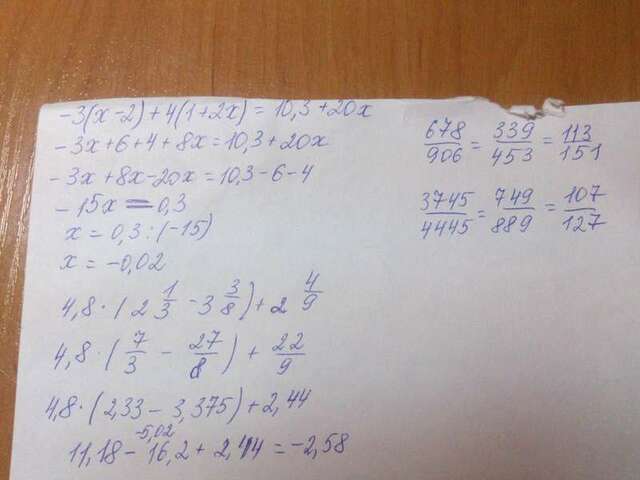 -3(x-2)+4(1+2x)=10,3+20x
-3x+6+4+8x=10,3+20x
-3x+8x-20x=10,3-6-4
-15x=0,3
x=0,3:(-15)
x=-0,02
4,8·(2 1/3 -3 3/8)+2 4/9
4,8·(7/3 - 27/8)+22/9
4,8·(2,33-3,375)+2,44
-5,02
11,18-16,2+2,44=-2,58
678/906=339/453=113/151
3745/4445=749/889=107/127